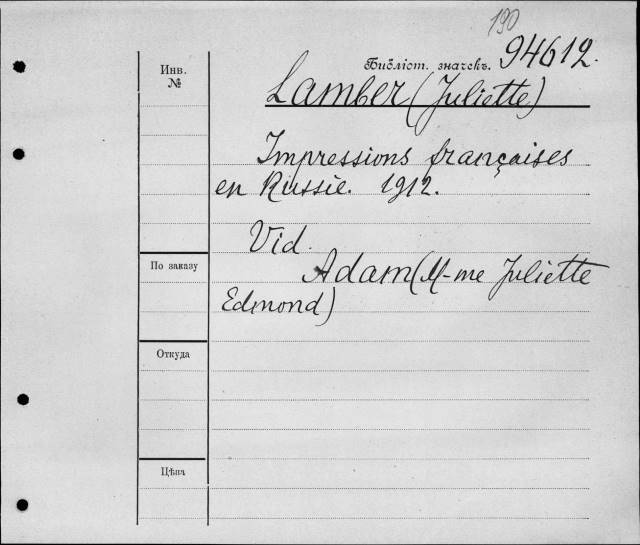 190
Библіот. значекъ. 94612.
Инв.
№
Lamber (Juliette)
Impressions françaises
en Russie. 1912.
Vid.
По заказу
Adam (M-me Juliette
Edmond)
Откуда
Цѣна